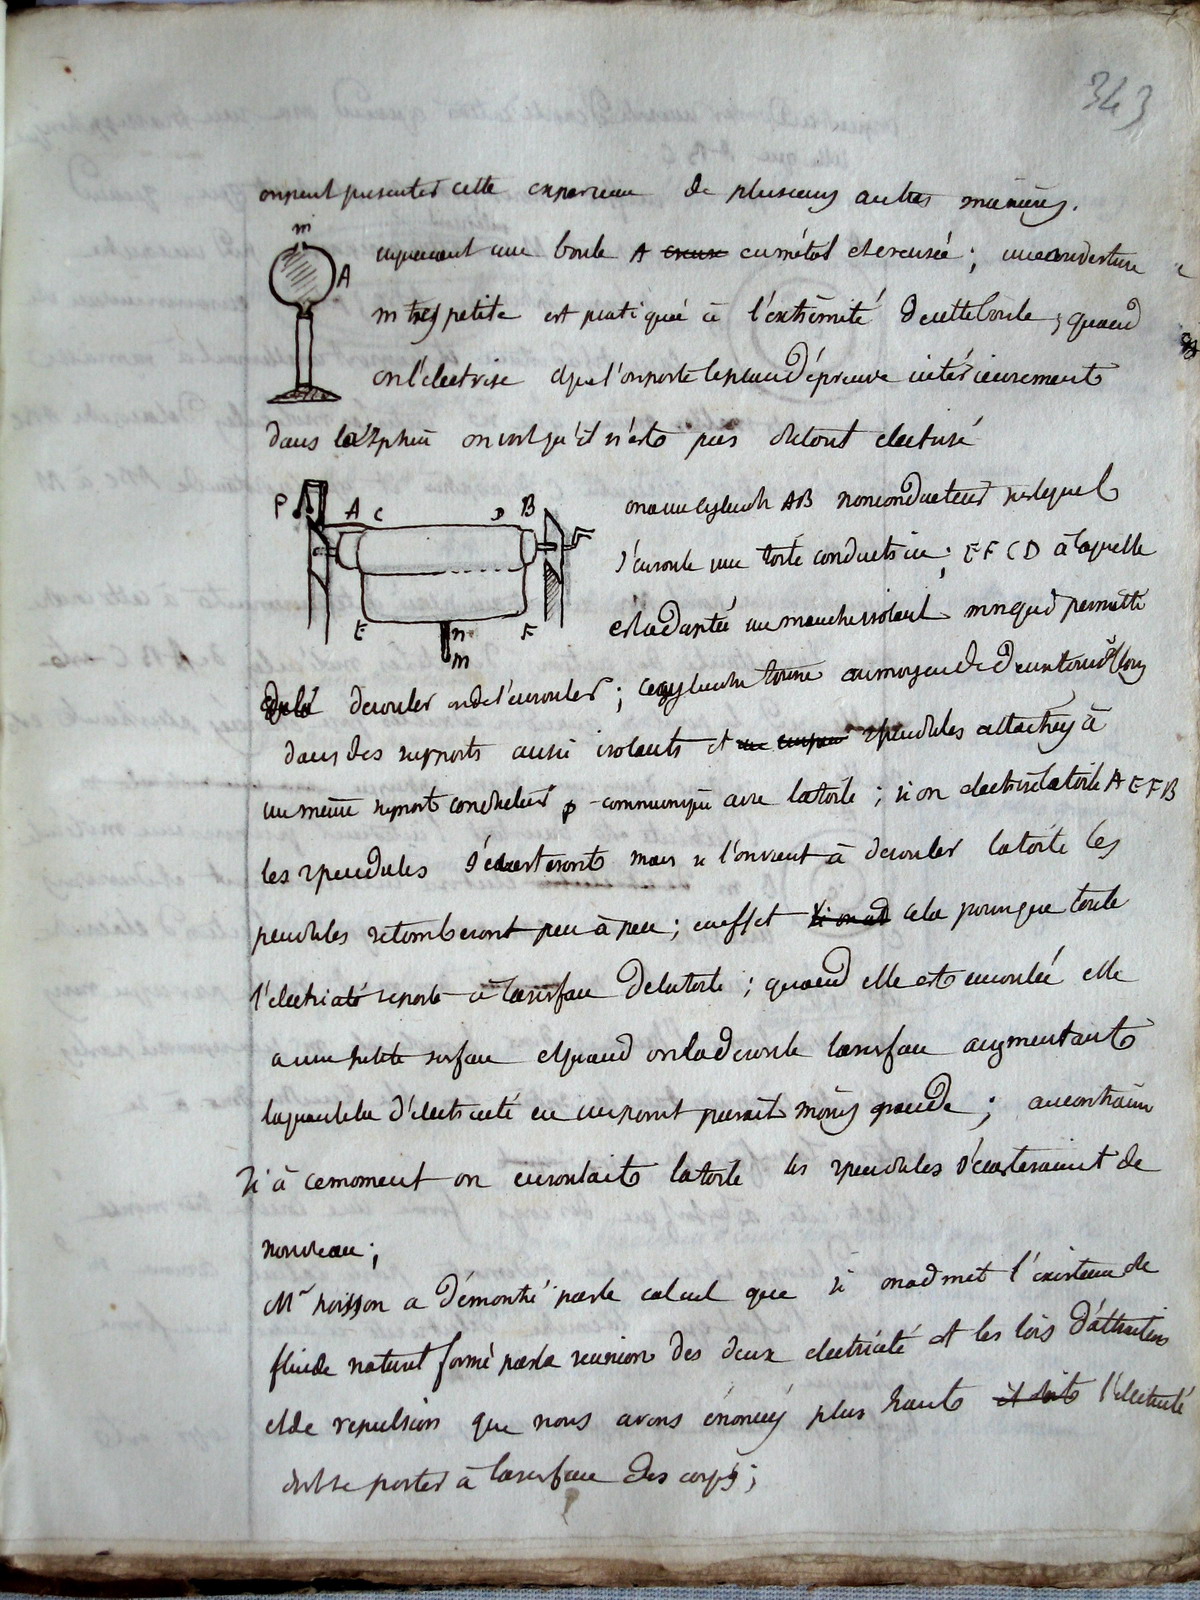 343
on peut presenter cette experience de plusieurs autres manieres.
m
A
en prenant une boule A creuse en métal et creusée ; une ouverture
m tres petite est pratiquée à l'extrémité de cette boule ; quand
on l'électrise et que l'on porte le plan d'épreuve intérieurement
dans la sphere on voit qu'il n'est pas du tout electrisé
P A C D B
E F
n
m
on a un cylindre AB non conducteur sur lequel
s'enroule une toile conductrice ; EFCD à laquelle
est adaptée un manche isolant mn qui permette
de la derouler ou de l'enrouler ; ce cylindre tourne au moyen de deux tourillons
dans des supports aussi isolants et 2 pendules attachés à
un même support conducteur p communique avec la toile ; si on electrise la toile A E F B
les 2 pendules s'écarteront mais si l'on vient à derouler la toile les
pendules retomberont peu à peu ; en effet si on cela pourqu toute
l'electricité se porte à la surface de la toile ; quand elle est enroulée elle
a une petite surface et quand on la deroule la surface augmentant
la quantité d'électricité en un point parait moins grande ; au contraire
Si à ce moment on enroulait la toile les 2 pendules s'écarteraient de
nouveau ;
Mr poisson a démontré par le calcul que si on admet l'existence de
fluide naturel formé par la reunion des deux electricité et les lois d'attraction
et de repulsion que nous avons énoncés plus haut l'électricité
doit se porter à la surface des corps ;